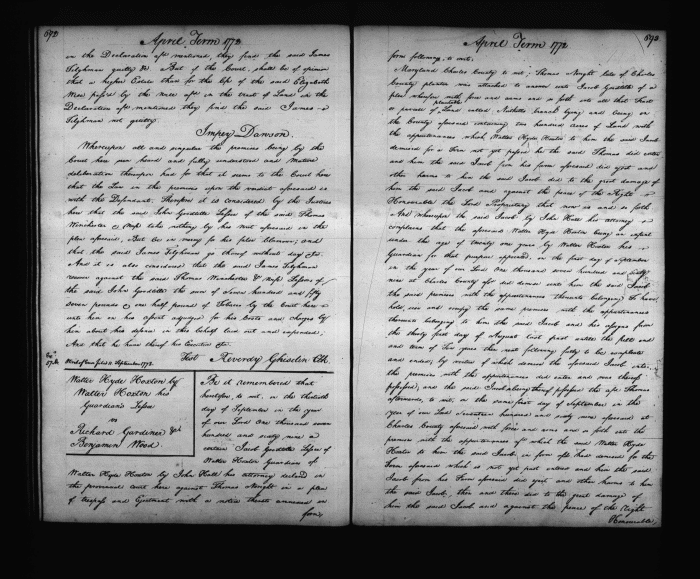 672
April Term 1772
in the Declaration afd mentioned, they find the said James
Tilghman guilty & But if the Court, shall be of opinion
that a higher Estate than for the life of the said Elizabeth
West passed by the in the tract of Land in the
Declaration afd mentioned they find the said James
Tilghman not guilty.
Impey Dawson.
Whereupon all and singular the premises being by the
Court here seen heard and fully understood and Mature
deliberation thereupon had for that it seems to the Court here
that the Law in the premises upon the verdict aforesaid is
with the Defendant. Therefore it is considered by the Justices
here that the said John Goodtitle Lessee of the said Thomas
Winchester & take nothing by his writ aforesaid in the
plea aforesaid, But be in mercy for his false Clamour, and
that the said James Tilghman go thereof without day &c.
And it is also considered that the said James Tilghman
recover against the said Thomas Winchester & Lessors of
the said John Goodtitle the sum of seven hundred and fifty
seven pounds & one half pound of Tobacco by the Court here
unto him on his assent adjudged for his Costs and Charges by
him about his defence in this behalf laid out and expended;
And that he have thereof his Execution &c.
Test Reverdy Ghiselin Clk.
Writ of Error filed in September 1772.
Walter Hyde Hoxton by
Walter Hoxton his
Guardian's Lessee
vs
Richard Gardiner &
Benjamin Wood
Be it remembered that
heretofore, to wit, on the thirtieth
day of September in the year
of our Lord One thousand seven
hundred and sixty nine a
certain Jacob Goodtitle Lessee of
Walter Hoxton Guardian of
Walter Hyde Hoxton by John Hall his attorney declared in
the provincial court here against Thomas Nought in a plea
of trespass and Ejectment with a notice thereto annexed in
form
673
April Term 1772
form following, to wit;
Maryland Charles County to wit; Thomas Nought late of Charles
County planter was attached to answer unto Jacob Goodtitle of a
plea wherefore with force and arms and so forth into all that Tract
or parcel of Land called lying and being in
the County aforesaid containing two hundred acres of Land with
the appurtenances which Walter Hyde Hoxton to him the said Jacob
demised for a Term not yet passed he the said Thomas did enter
and him the said Jacob from his farm aforesaid did eject and
other harms to him the said Jacob did to the great damage of
him the said Jacob and against the peace of the Right
Honourable the Lord Proprietary that now is and so forth
And whereupon the said Jacob by John Hall his attorney
complains that the aforesaid Walter Hyde Hoxton being an infant
under the age of twenty one years by Walter Hoxton his
Guardian for that purpose appointed, on the first day of September
in the year of our Lord One thousand seven hundred and sixty
nine at Charles County afd did demise unto him the said Jacob
the said premises with the appurtenances thereunto belonging To have
hold, use and occupy the same premises with the appurtenances
thereunto belonging to him the said Jacob and his assigns from
the thirty first day of August last past until the full end
and term of Ten years then next following fully to be compleat
and ended; by virtue of which demise the said Jacob into
the premises with the appurtenances did enter and was thereof
possessed, and the said Jacob being thereof possessed the afd Thomas
afterwards, to wit, on the same first day of September in the
year of our Lord Seventeen hundred and sixty nine aforesaid at
Charles County aforesaid with force and arms and so forth into the
premises with the appurtenances afd which the said Walter Hyde
Hoxton to him the said Jacob in form afd had demised for the
Term aforesaid which is not yet past entered and him the said
Jacob from his Farm aforesaid did eject and other harms to him
the said Jacob, then and there did to the great damage of
him the said Jacob and against the peace of the Right
Honourable